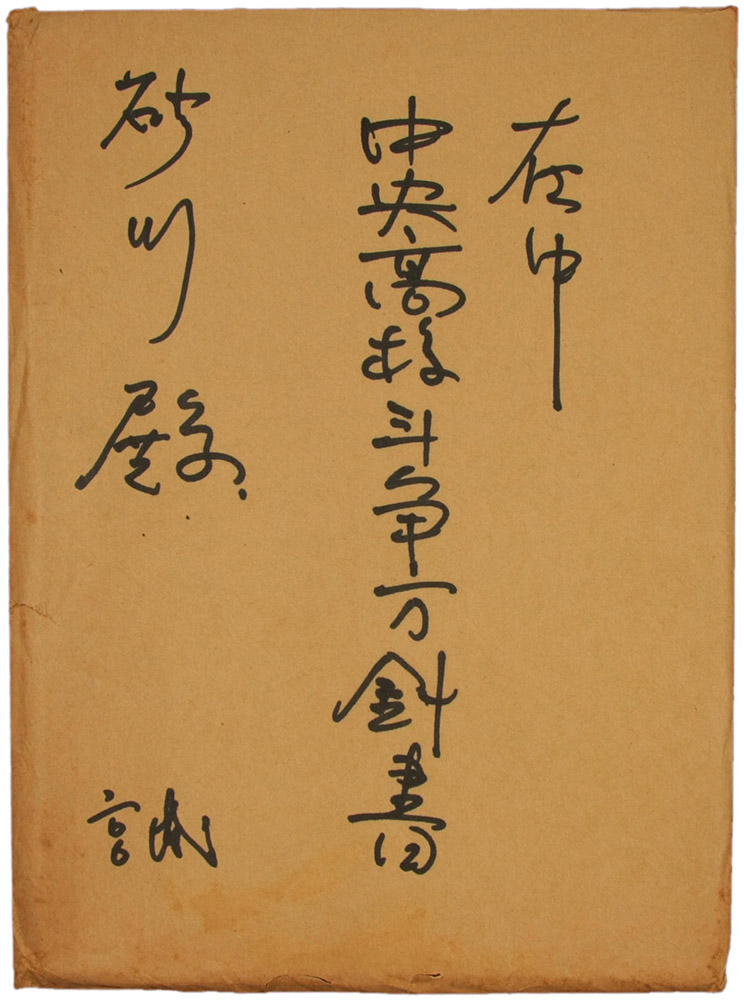 在中
中央高校斗争方針書
砂川殿
誠